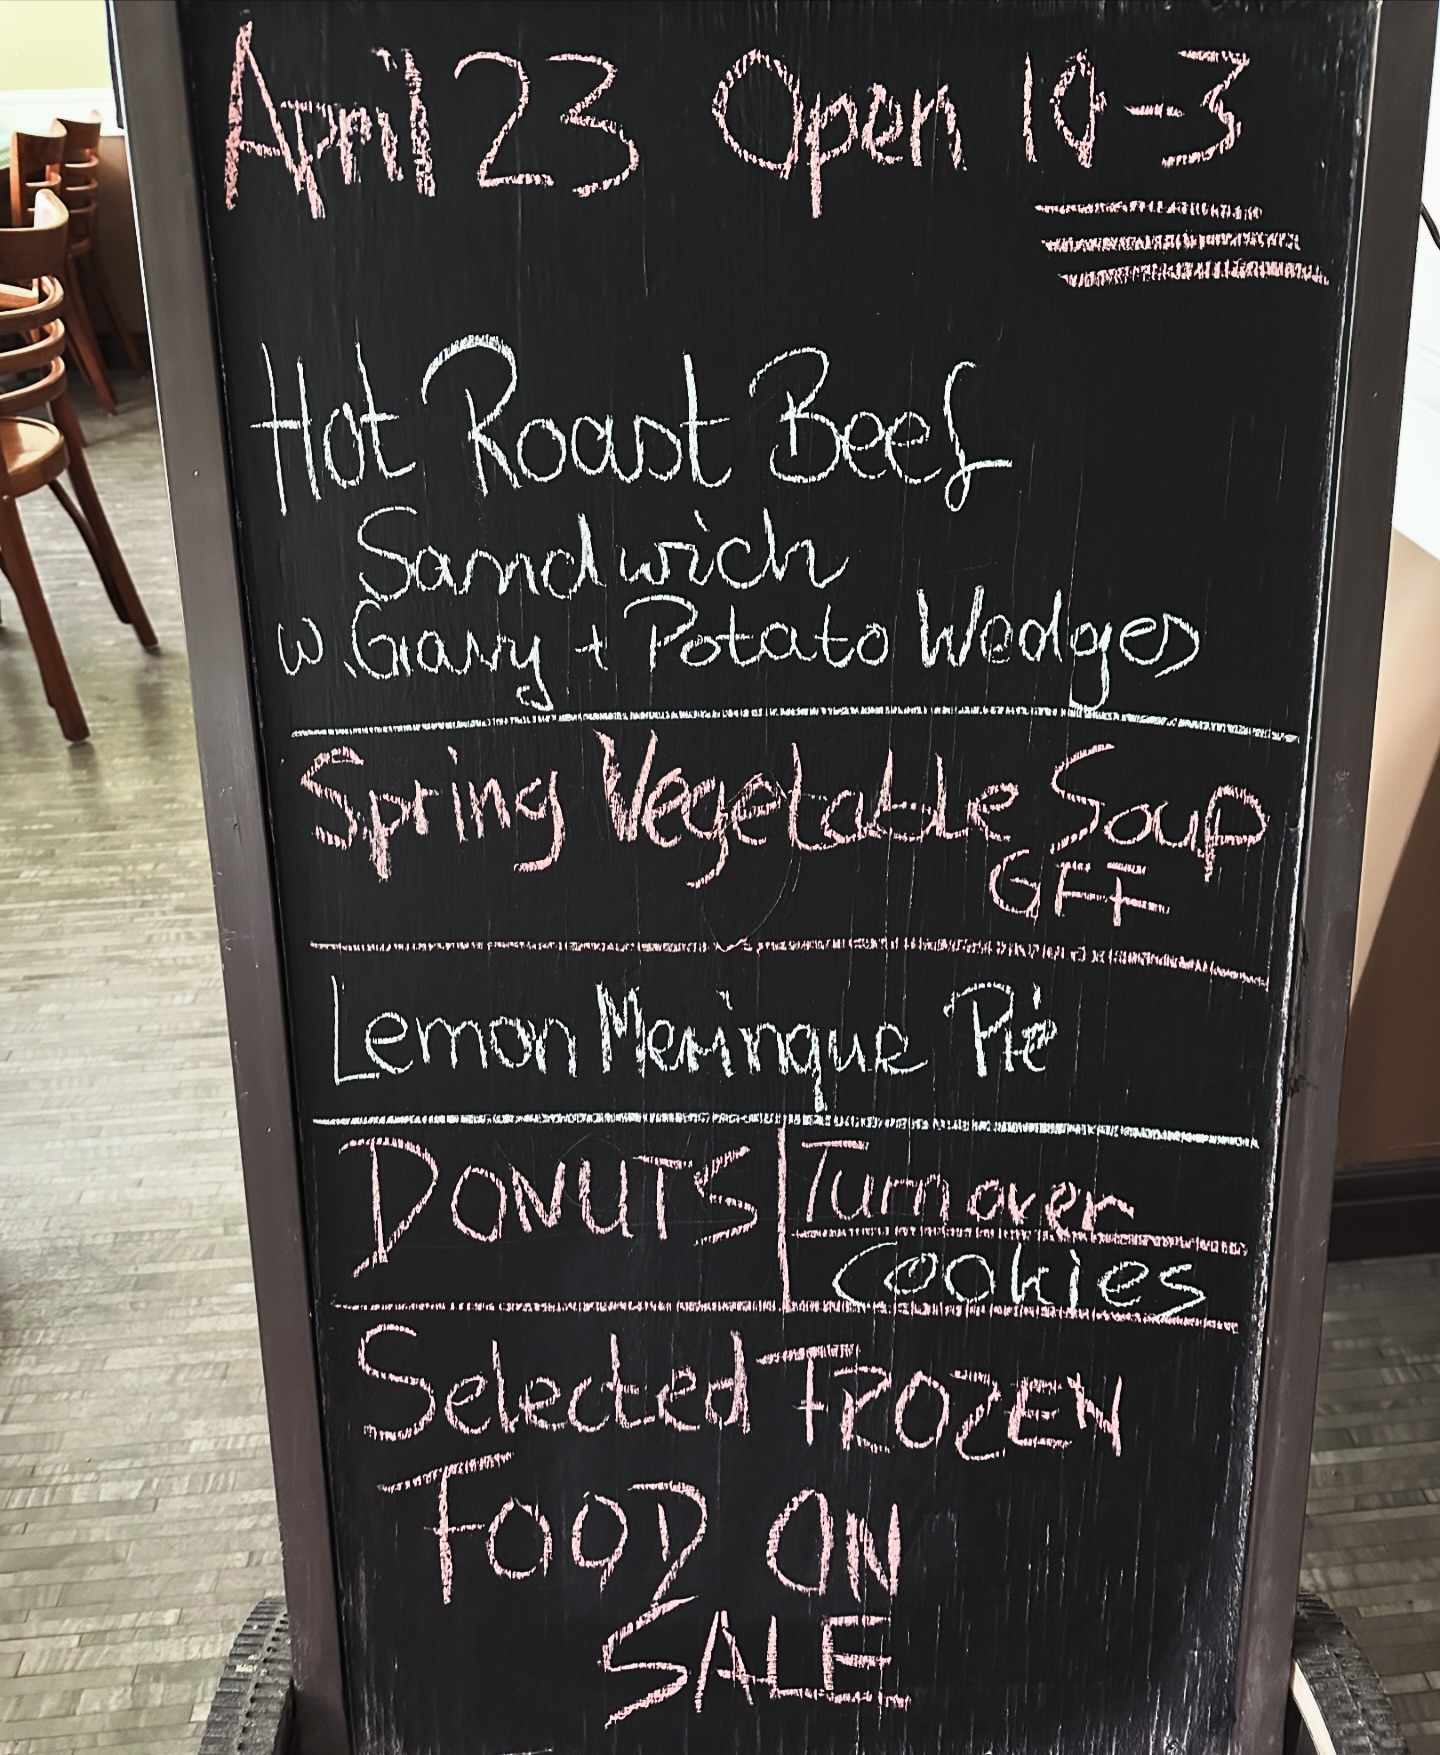 April 23 Open 10-3
Hot Roast Beef
Sandwich
w. Gravy + Potato Wedges
Spring Vegetable Soup
GFF
Lemon Meringue Pie
DONUTS
Turnover
Cookies
Selected FROZEN
FOOD ON
SALE